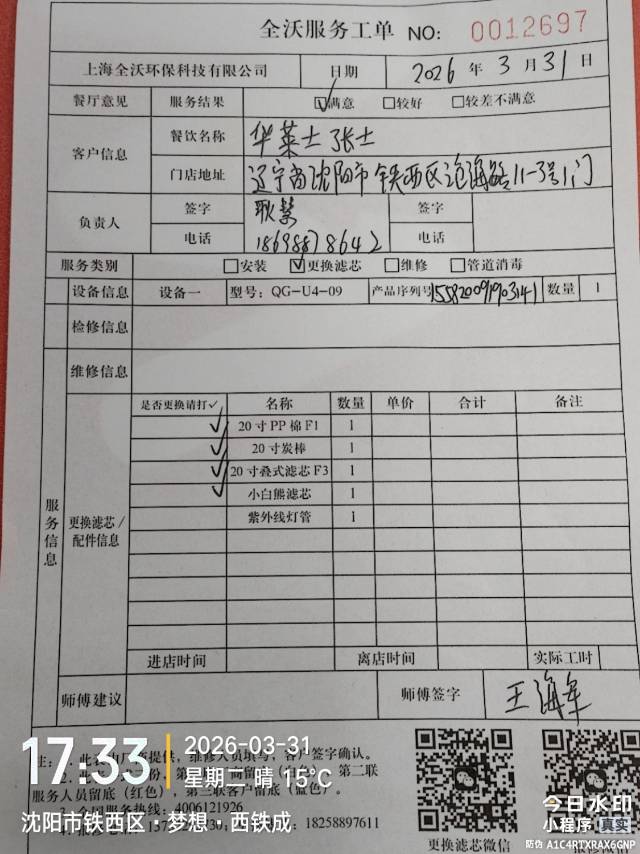 全沃服务工单 NO: 0012697
上海全沃环保科技有限公司 日期 2026年3月31日
餐厅意见 服务结果 满意 较好 较差不满意
客户信息 餐饮名称 华莱士
门店地址 辽宁省沈阳市铁西区沧海路11-3号1门
负责人 签字 耿慧 签字
电话 18698878642 电话
服务类别 安装 更换滤芯 维修 管道消毒
设备信息 设备一 型号: QG-U4-09 产品序列号 数量 1
检修信息
维修信息
服务信息
更换滤芯/配件信息
是否更换请打✓ 名称 数量 单价 合计 备注
✓ 20寸PP棉F1 1
✓ 20寸炭棒 1
✓ 20寸叠式滤芯F3 1
✓ 小白熊滤芯 1
紫外线灯管 1
进店时间 离店时间 实际工时
师傅建议 师傅签字 王海军
服务人员留底（红色），第三联客户留底（蓝色）。
全国服务热线: 4006121926
18258897611
更换滤芯微信
17:33
2026-03-31
星期二 晴 15℃
沈阳市铁西区·梦想·西铁成
今日水印
小程序 真实
防伪 A1C4RTXRAX6GNP